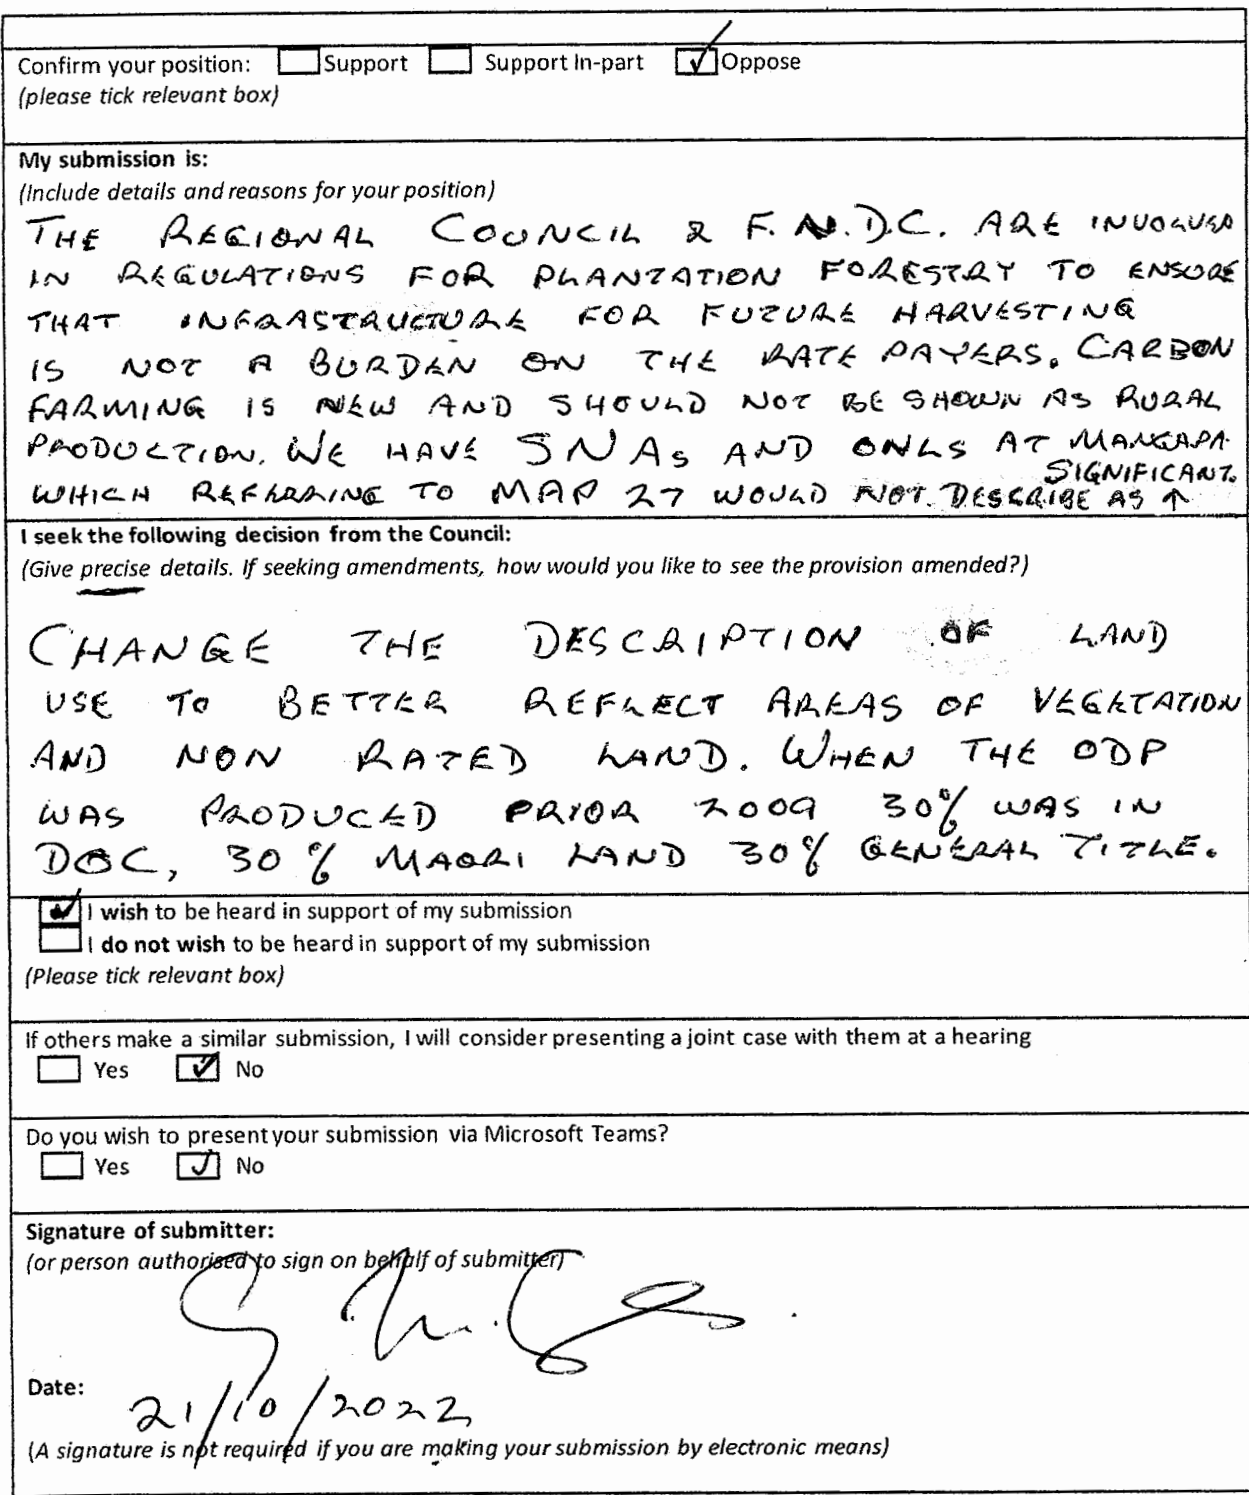 Confirm your position: Support Support In-part Oppose
(please tick relevant box)
My submission is:
(Include details and reasons for your position)
THE REGIONAL COUNCIL & F.N.D.C. ARE INVOLVED
IN REGULATIONS FOR PLANTATION FORESTRY TO ENSURE
THAT INFRASTRUCTURE FOR FUTURE HARVESTING
IS NOT A BURDEN ON THE RATE PAYERS. CARBON
FARMING IS NEW AND SHOULD NOT BE SHOWN AS RURAL
PRODUCTION. WE HAVE SNAs AND ONLS AT MANGAPA
SIGNIFICANT.
WHICH REFERRING TO MAP 27 WOULD NOT DESCRIBE AS ↑
I seek the following decision from the Council:
(Give precise details. If seeking amendments, how would you like to see the provision amended?)
CHANGE THE DESCRIPTION OF LAND
USE TO BETTER REFLECT AREAS OF VEGETATION
AND NON RATED LAND. WHEN THE ODP
WAS PRODUCED PRIOR 2009 30% WAS IN
DOC, 30% MAORI LAND 30% GENERAL TITLE.
I wish to be heard in support of my submission
I do not wish to be heard in support of my submission
(Please tick relevant box)
If others make a similar submission, I will consider presenting a joint case with them at a hearing
Yes No
Do you wish to present your submission via Microsoft Teams?
Yes No
Signature of submitter:
(or person authorised to sign on behalf of submitter)
Date:
21/10/2022
(A signature is not required if you are making your submission by electronic means)